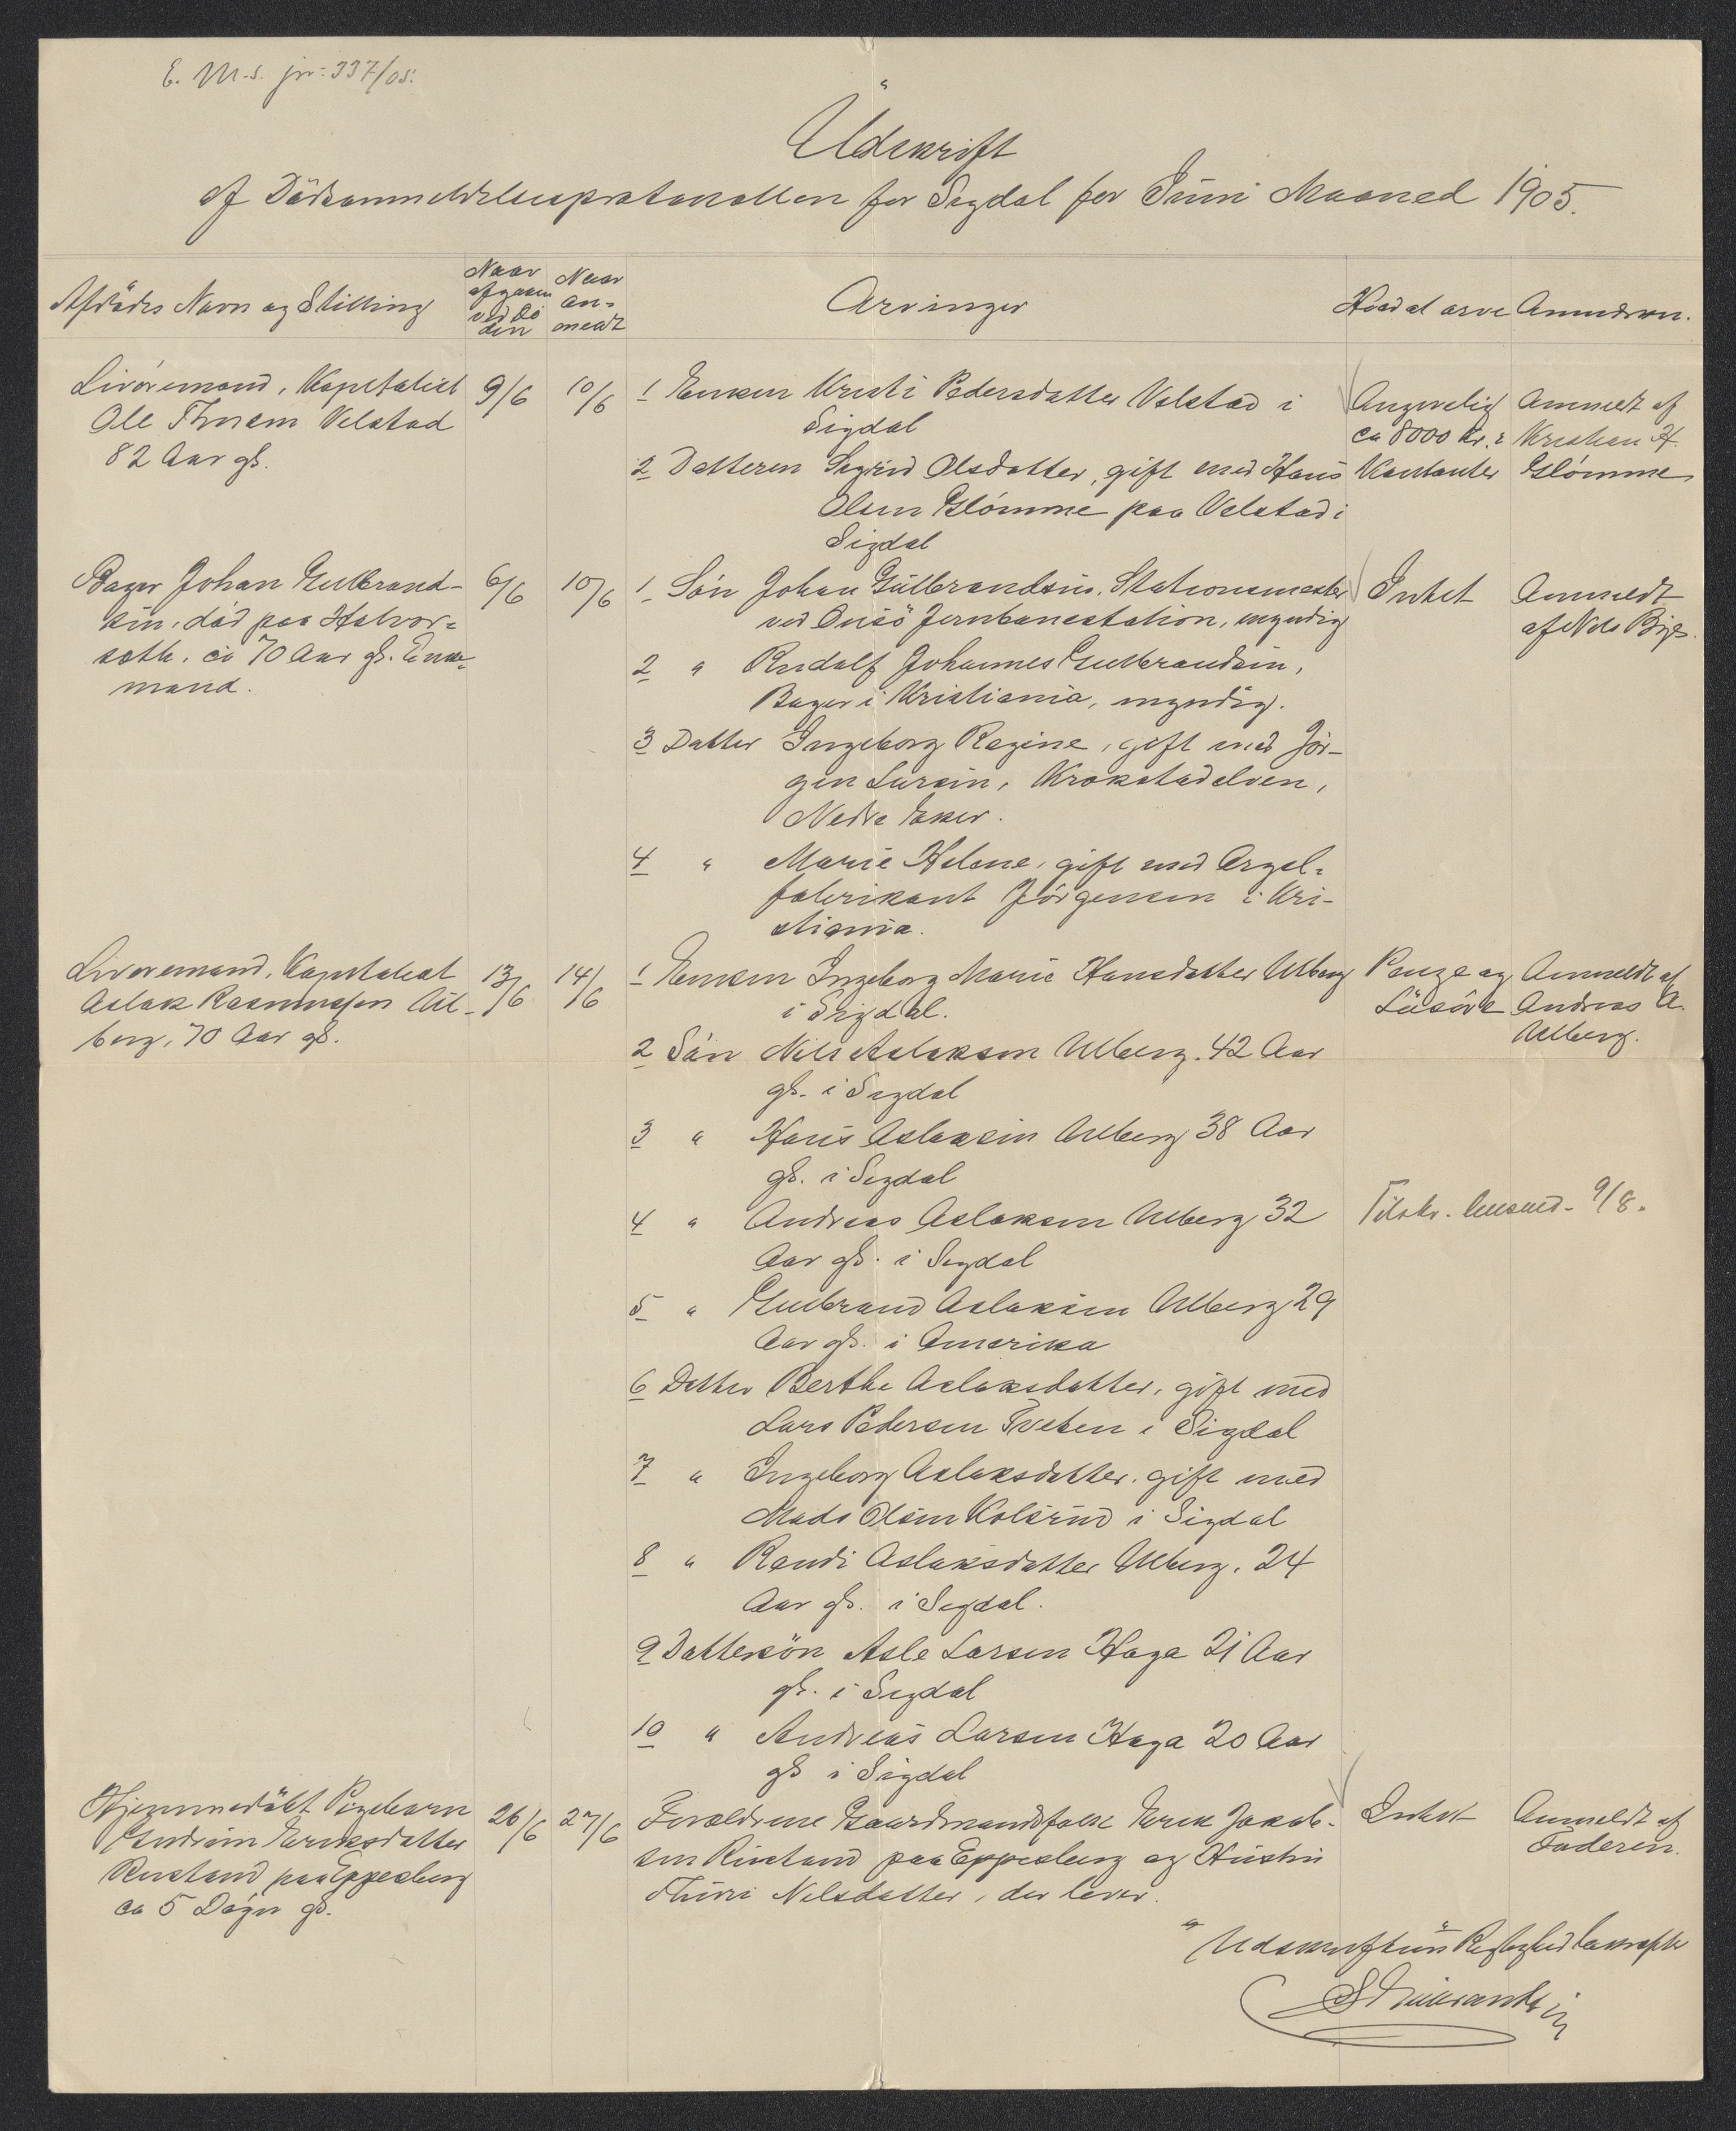 E. M.s. jnr: 337/05.
Udskrift
af Dödsanmeldelsesprotokollen for Sigdal for Juni Maaned 1905.
Afdödes Navn og Stilling
Naar
afgaaen
ved Dö
den
Naar
an-
meldt
Arvinger
Hvad at arve
Anmdren.
Livöremand, Kapitalist
Ole Velstad
82 Aar gl.
9/6
10/6
1 Enken Kristi Pedersdatter Velstad i
Sigdal
2 Datteren Sigrid Olsdatter, gift med Hans
Olsen Glömme paa Velstad i
Sigdal
Angivelig
ca 8000 Kr. i
Kontanter
Anmeldt af
Kristian H.
Glömme
Bager Johan Gulbrand-
sen, död paa Halvor-
seth, ca 70 Aar gl. Enke-
mand.
6/6
10/6
1 Sön Johan Gulbrandsen, Stationsmester
ved Ousö Jernbanestation, myndig
2 " Rudolf Johannes Gulbrandsen,
Bager i Kristiania, myndig.
3 Datter Ingeborg Regine, gift med Jör-
gen Larsen, Krokstadelven,
Nedre Eker.
4 " Marie Helene, gift med Orgel-
fabrikant Jörgensen i Kri-
stiania.
Intet
Anmeldt
af Nils Bye.
Livöremand, Kapitalist
Aslak Rasmussen Ul-
berg, 70 Aar gl.
13/6
14/6
1 Enken Ingeborg Marie Hansdatter Ulberg
i Sigdal.
2 Sön Nils Aslaksen Ulberg. 42 Aar
gl. i Sigdal
3 " Hans Aslaksen Ulberg 38 Aar
gl. i Sigdal
4 " Andreas Aslaksen Ulberg 32
Aar gl. i Sigdal
5 " Gulbrand Aslaksen Ulberg 29
Aar gl. i Amerika
6 Datter Berthe Aslaksdatter, gift med
Lars Pedersen Tveten i Sigdal
7 " Ingeborg Aslaksdatter, gift med
Mads Olsen Kolsrud i Sigdal
8 " Randi Aslaksdatter Ulberg. 24
Aar gl. i Sigdal.
9 Dattersön Asle Larsen Haga 21 Aar
gl. i Sigdal
10 " Andreas Larsen Haga 20 Aar
gl i Sigdal
Penge og
Lösöre
Anmeldt af
Andreas A.
Ulberg.
Tilskr. 9/8.
Hjemmedöbt Pigebarn
Gudrun Eriksdatter
Rustand paa Eppesberg
ca 5 Dögn gl.
26/6
27/6
Forældrene Gaardmandsfolk Erik Jakob-
sen Rustand paa Eppesberg og Hustru
Thuri Nelsdatter, der lever.
Intet
Anmeldt af
Faderen.
Udskriftens Rigtighed bekræftes
S Gulbrandsen